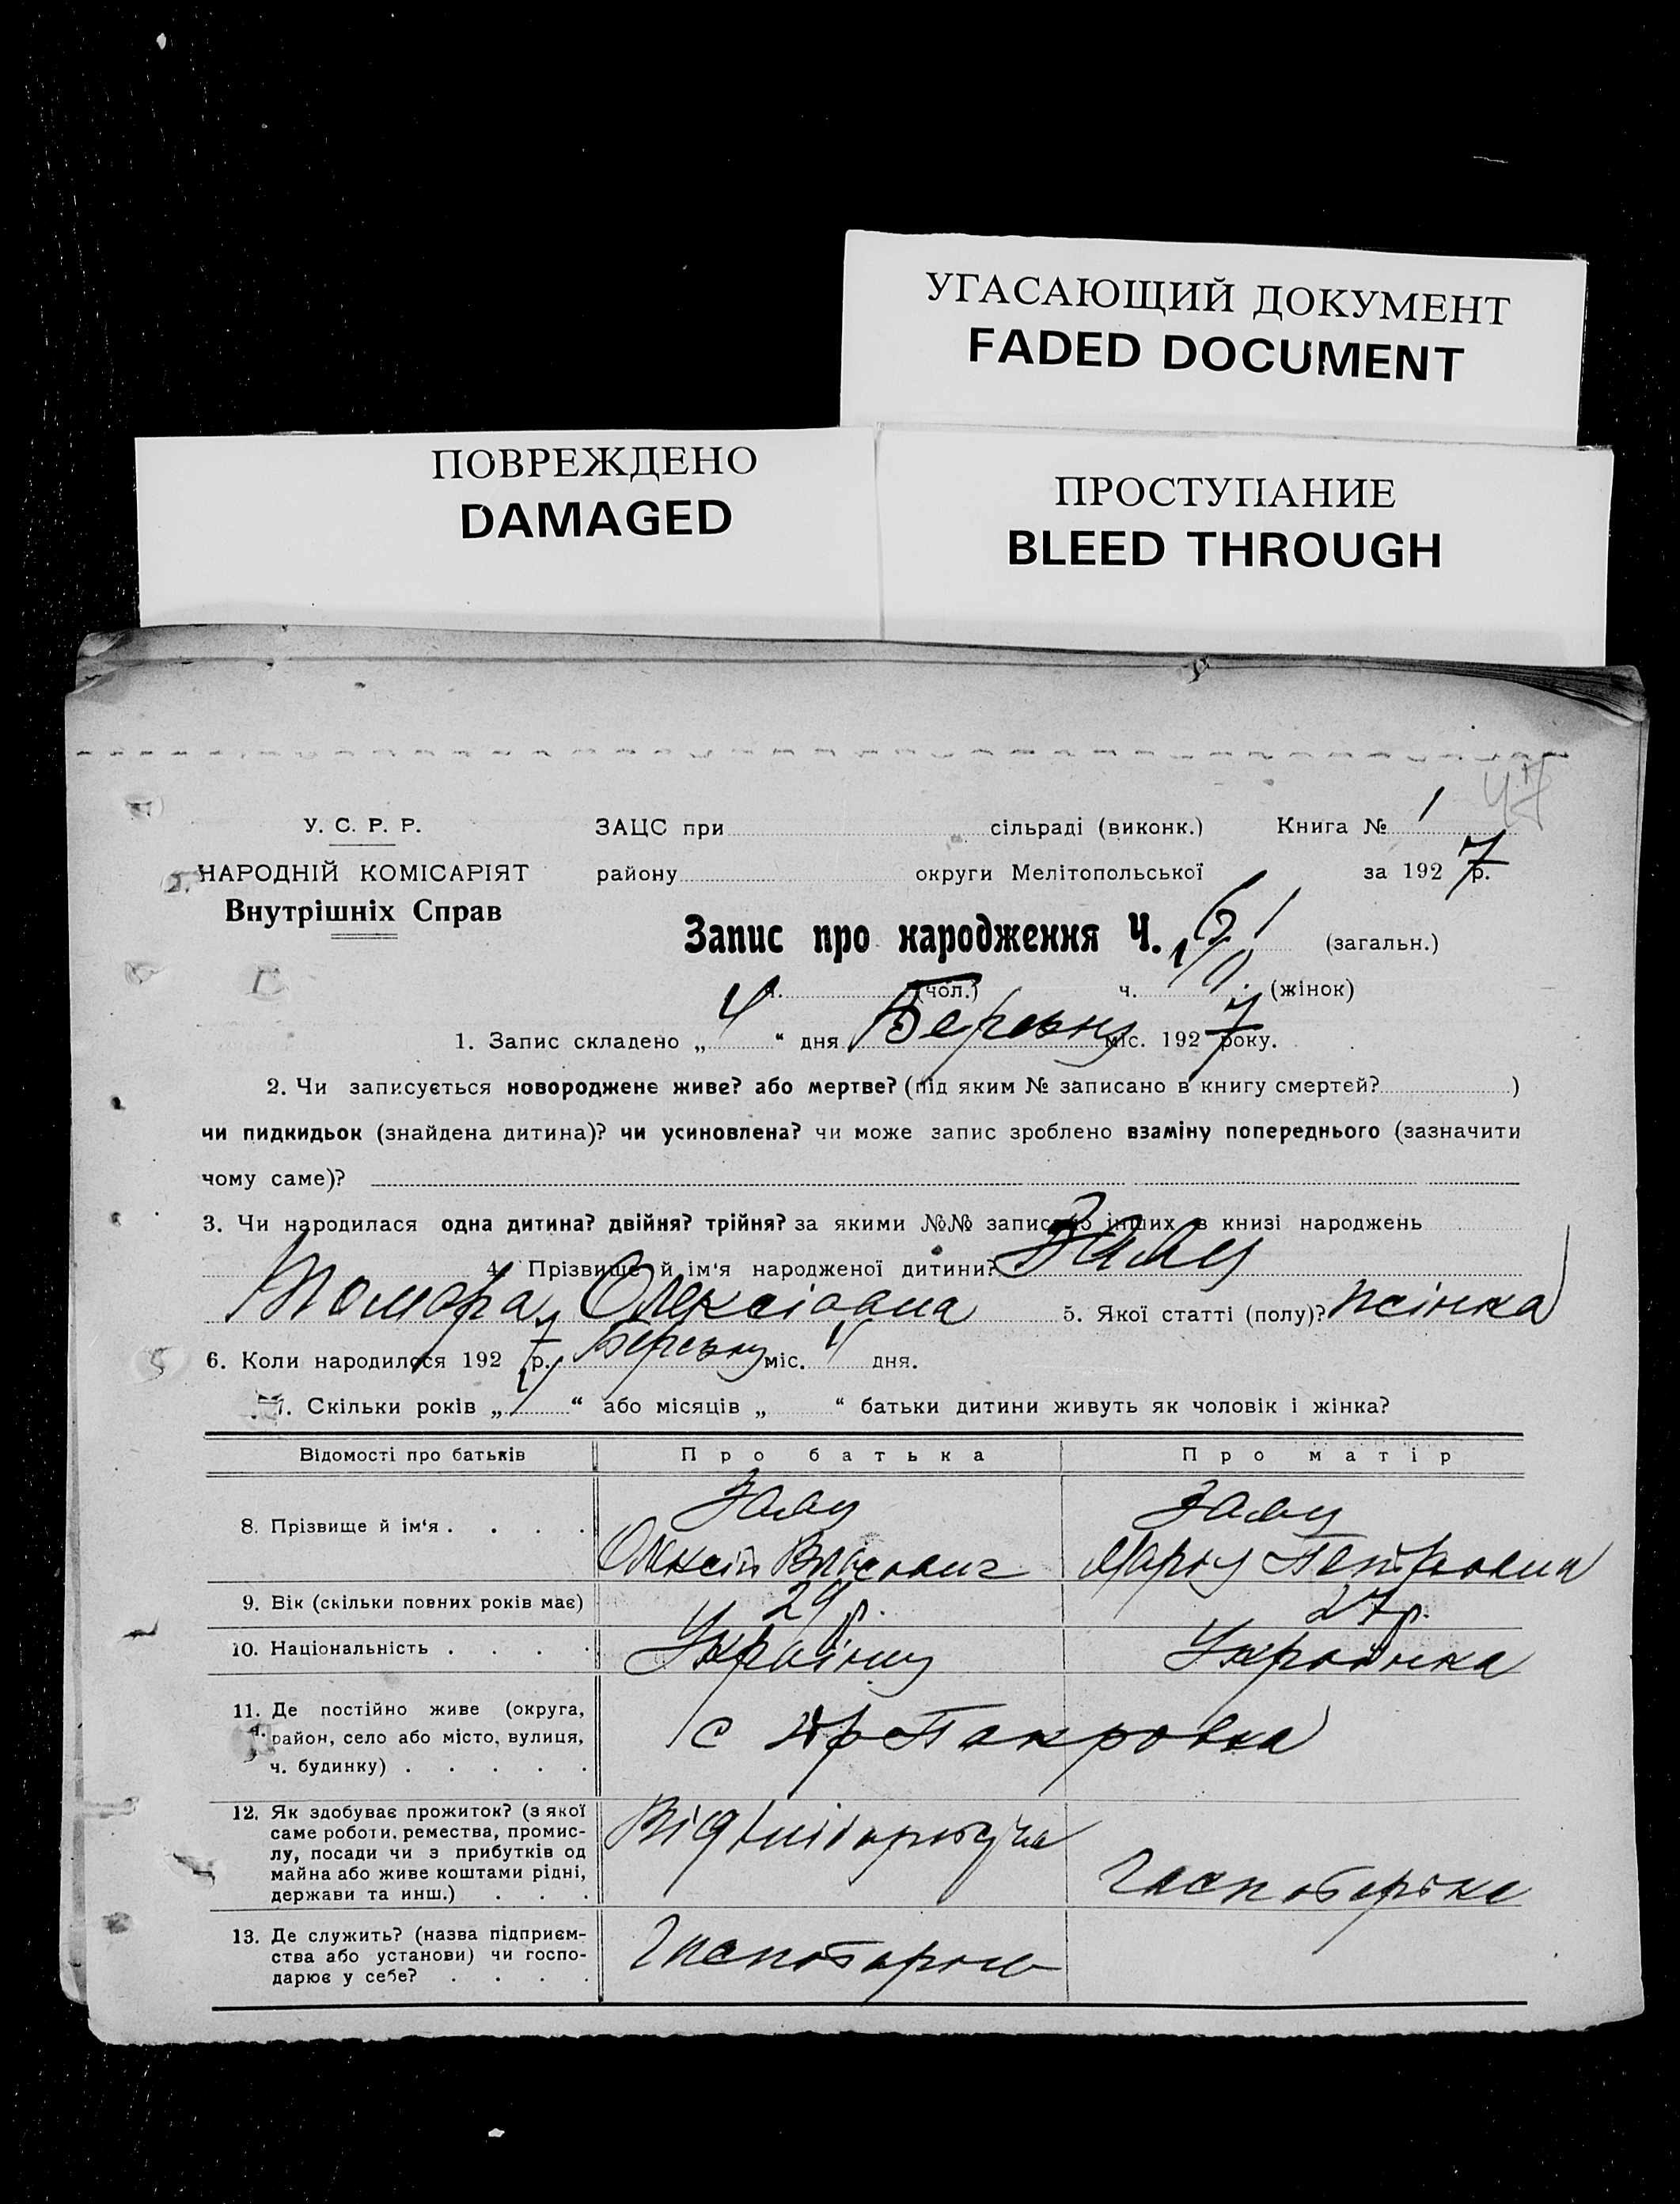 УГАСАЮЩИЙ ДОКУМЕНТ
FADED DOCUMENT
ПОВРЕЖДЕНО
DAMAGED
ПРОСТУПАНИЕ
BLEED THROUGH
47
У. С. Р. Р.
НАРОДНІЙ КОМІСАРІЯТ
Внутрішніх Справ
ЗАЦС при сільраді (виконк.) Книга № 1
району округи Мелітопольської за 1927 р.
Запис про народження Ч. (загальн.)
ч. (чол.) ч. (жінок)
1. Запис складено „ 4 “ дня Березню міс. 1927 року.
2. Чи записується новороджене живе? або мертве? (під яким № записано в книгу смертей? )
чи пидкидьок (знайдена дитина)? чи усиновлена? чи може запис зроблено взаміну попереднього (зазначити
чому саме)?
3. Чи народилася одна дитина? двійня? трійня? за якими №№ записано інших в книзі народжень
4. Прізвище й ім'я народженої дитини?
Томара Олексіовна 5. Якої статті (полу)? жінка
6. Коли народилося 1927 р. Березню міс. 4 дня.
7. Скільки років „ “ або місяців „ “ батьки дитини живуть як чоловік і жінка?
Відомості про батьків Про батька Про матір
8. Прізвище й ім'я . . . .
Олексій Власович
Петровна
9. Вік (скільки повних років має) 29 р. 27 р.
10. Національність . . . . Українц Українка
11. Де постійно живе (округа,
район, село або місто, вулиця,
ч. будинку) . . . . .
с Покровка
12. Як здобуває прожиток? (з якої
саме роботи, ремества, промис-
лу, посади чи з прибутків од
майна або живе коштами рідні,
держави та инш.) . . .
13. Де служить? (назва підприєм-
ства або установи) чи госпо-
дарює у себе? . . . .